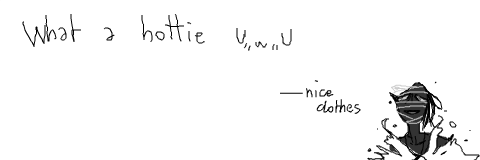 What a hottie U,,w,,U
—nice
clothes